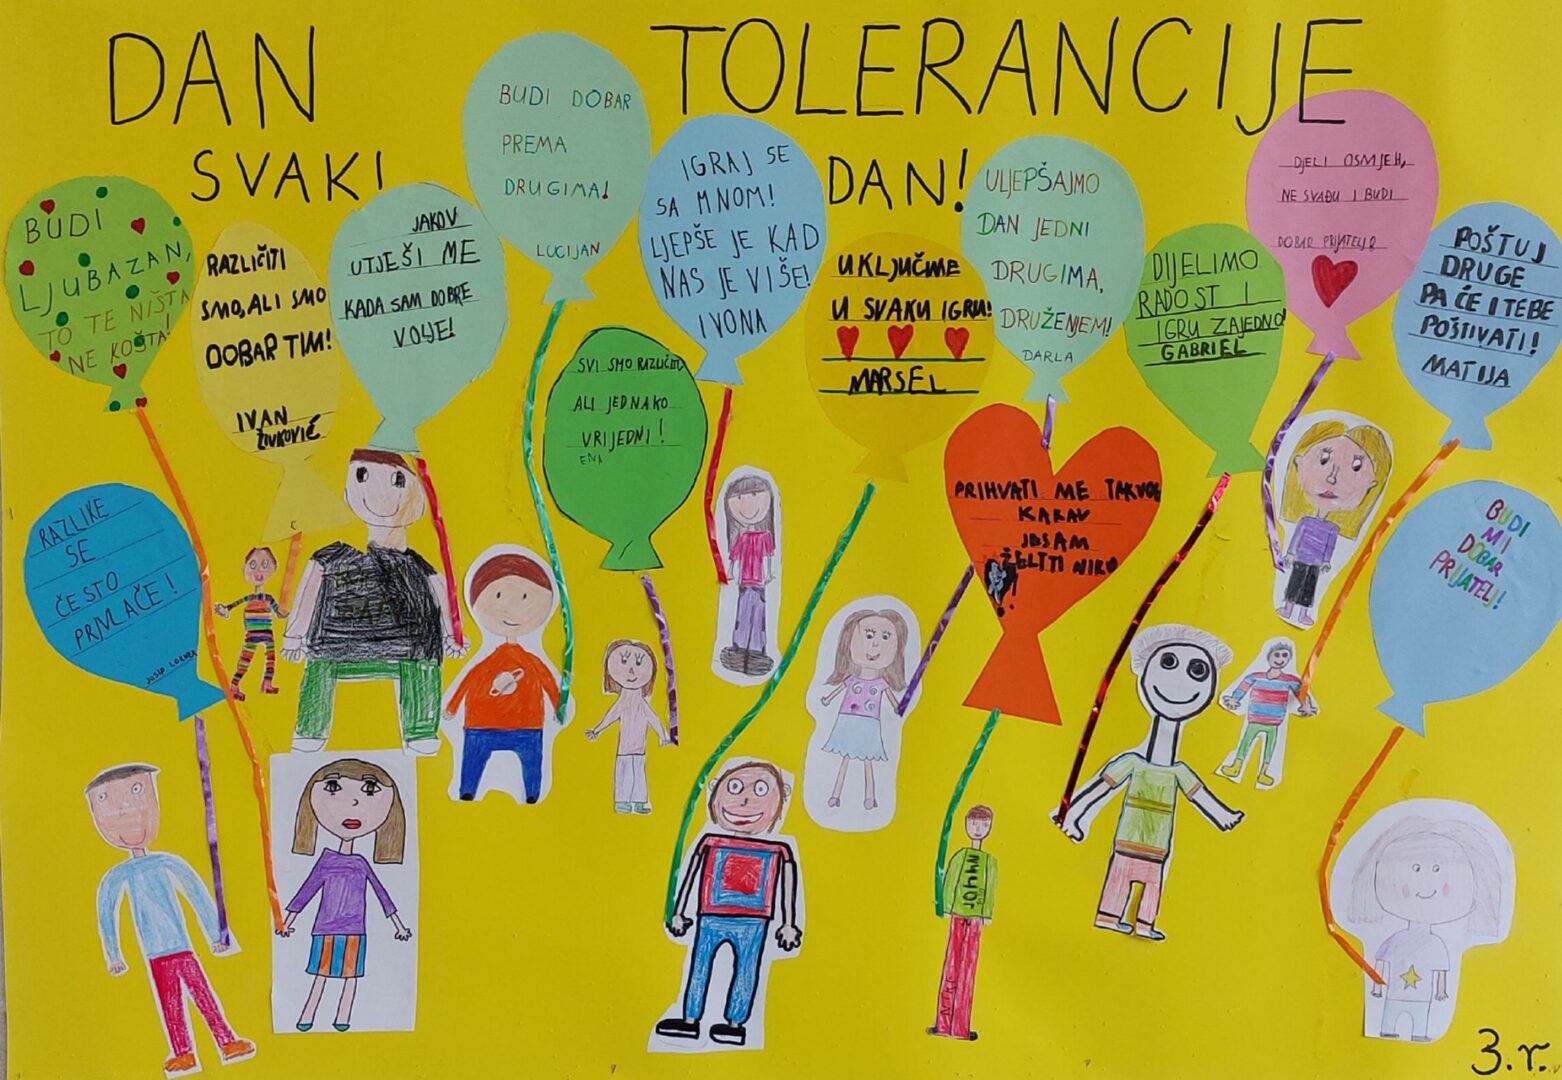 DAN TOLERANCIJE
SVAKI DAN!
BUDI
LJUBAZAN,
TO TE NIŠTA
NE KOŠTA!
RAZLIČITI
SMO, ALI SMO
DOBAR TIM!
IVAN
ŽIVKOVIĆ
JAKOV
UTJEŠI ME
KADA SAM DOBRE
VOLJE!
BUDI DOBAR
PREMA
DRUGIMA!
LUCIJAN
IGRAJ SE
SA MNOM!
LJEPŠE JE KAD
NAS JE VIŠE!
IVONA
UKLJUČIME
U SVAKU IGRU!
MARSEL
ULJEPŠAJMO
DAN JEDNI
DRUGIMA,
DRUŽENJEM!
DARLA
DIJELIMO
RADOST I
IGRU ZAJEDNO!
GABRIEL
DJELI OSMJEH,
NE SVAĐU I BUDI
DOBAR PRIJATELJ!
POŠTUJ
DRUGE
PA ĆE I TEBE
POŠTIVATI!
MATIJA
RAZLIKE
SE
ČESTO
PRIVLAČE!
JOSIP
SVI SMO RAZLIČITI
ALI JEDNAKO
VRIJEDNI!
ENA
PRIHVATI ME TAKVOG
KAKAV
JESAM
BUDI
MI
DOBAR
PRIJATELJ!
NIKE
3.r.